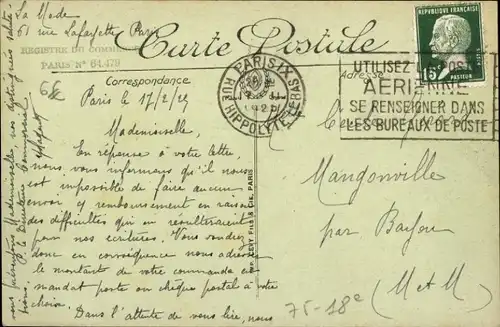 La Mode
61 rue Lafayette Paris
REGISTRE DU COMMERCE
PARIS N° 64.479
Carte Postale
Correspondance
Adresse
Paris le 17/2/29
Mademoiselle,
En réponse à votre lettre,
nous vous informons qu'il nous
est impossible de faire aucun
envoi contre remboursement en raison
des difficultés qui en résulteraient
pour nos écritures. Vous voudrez
donc en conséquence nous adresser
le montant de votre commande en
mandat poste ou chèque postal à votre
choix.
Dans l'attente de vous lire, nous
vous présentons Mademoiselle, nos
P. le Directeur Commercial
PARIS IX
RUE HIPPOLYTE-LEBAS
REPUBLIQUE FRANÇAISE
15c
PASTEUR
POSTES
UTILISEZ LA POSTE
AERIENNE
SE RENSEIGNER DANS
LES BUREAUX DE POSTE
LEVY FILS & CIE PARIS
Mangonville
par Bayon
(M et M)
75-18e
6€